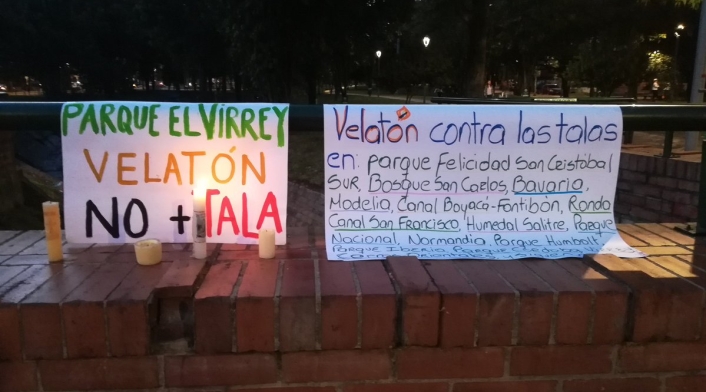 PARQUE EL VIRREY
VELATÓN
NO + TALA
Velatón contra las talas
en: parque Felicidad San Cristóbal
Sur, Bosque San Carlos, Bavaria,
Modelia, Canal Boyacá-Fontibón, Ronda
Canal San Francisco, Humedal Salitre, Parque
Nacional, Normandia, Parque Humbolt
Parque Iberia, Parque